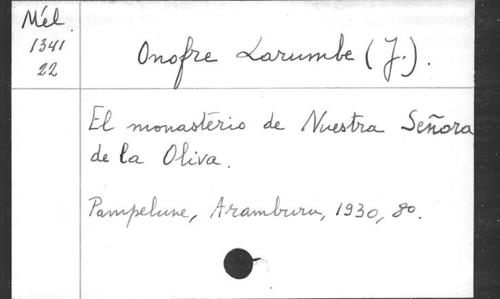 Mél.
1341
22
Onofre Larumbe (J.).
El monastério de Nuestra Señora
de la Oliva.
Pampelune, Aramburu, 1930, 8o.